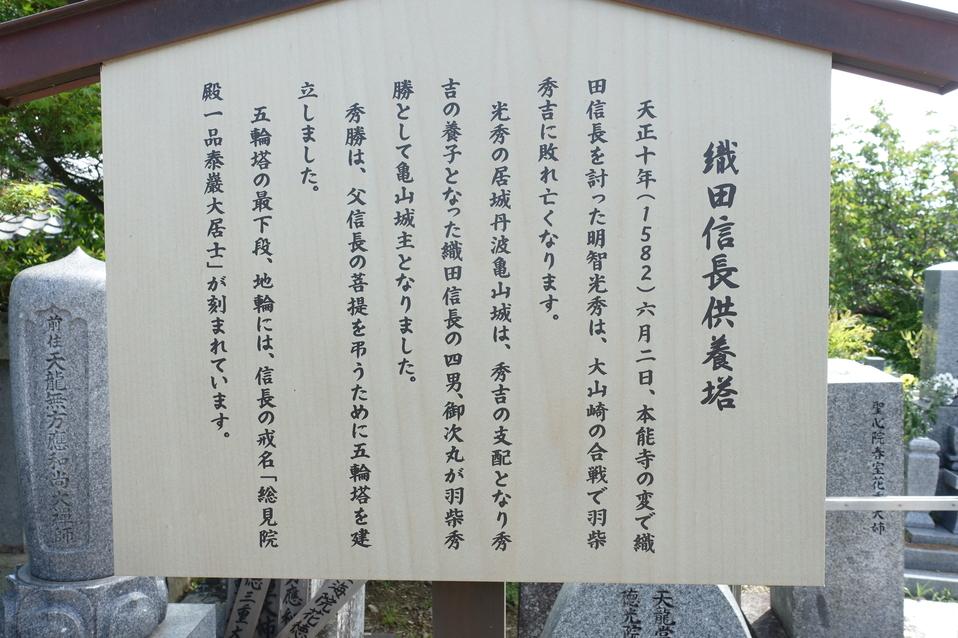 織田信長供養塔
天正十年(1582)六月二日、本能寺の変で織
田信長を討った明智光秀は、大山崎の合戦で羽柴
秀吉に敗れ亡くなります。
光秀の居城丹波亀山城は、秀吉の支配となり秀
吉の養子となった織田信長の四男、御次丸が羽柴秀
勝として亀山城主となりました。
秀勝は、父信長の菩提を弔うために五輪塔を建
立しました。
五輪塔の最下段、地輪には、信長の戒名「総見院
殿一品泰巌大居士」が刻まれています。
前住天龍無方應和尚大禅師
聖心院春室花
大姉
天龍
徳光院
海院花徳
三重